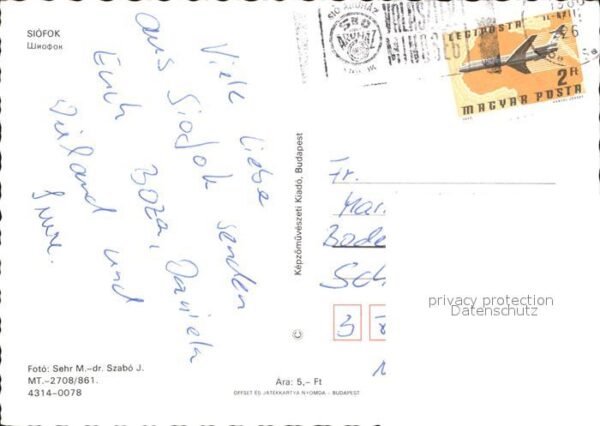 SIÓFOK
Шиофок
SIÓ ÁRUHÁZ
SIÓ
ÁRUHÁZ
LEGIPOSTA
2 Ft
MAGYAR POSTA
Viele liebe
aus Siofok senden
Euch Boza, Daniela
und
Képzőművészeti Kiadó, Budapest
©
Fr.
Mar.
Bode
Sch
3
privacy protection
Datenschutz
Fotó: Sehr M.–dr. Szabó J.
MT.–2708/861.
4314–0078
Ára: 5,– Ft
OFFSET ÉS JÁTÉKKÁRTYA NYOMDA – BUDAPEST